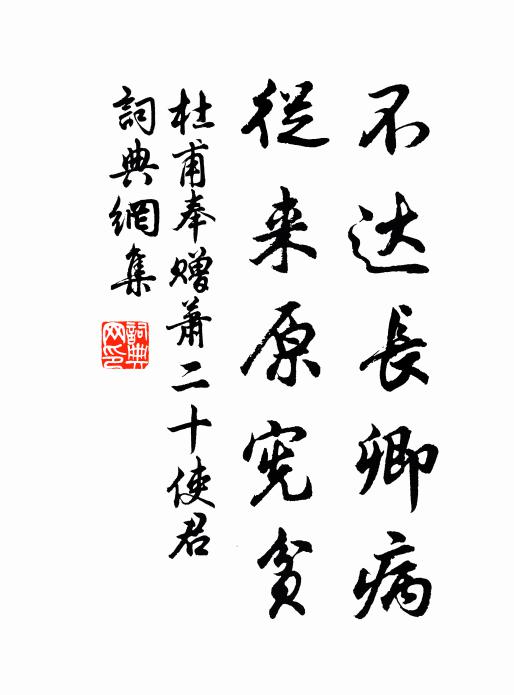 不达長卿病
從来原宪貧
杜甫奉赠蕭二十使君
詞典網集
詞典
网印